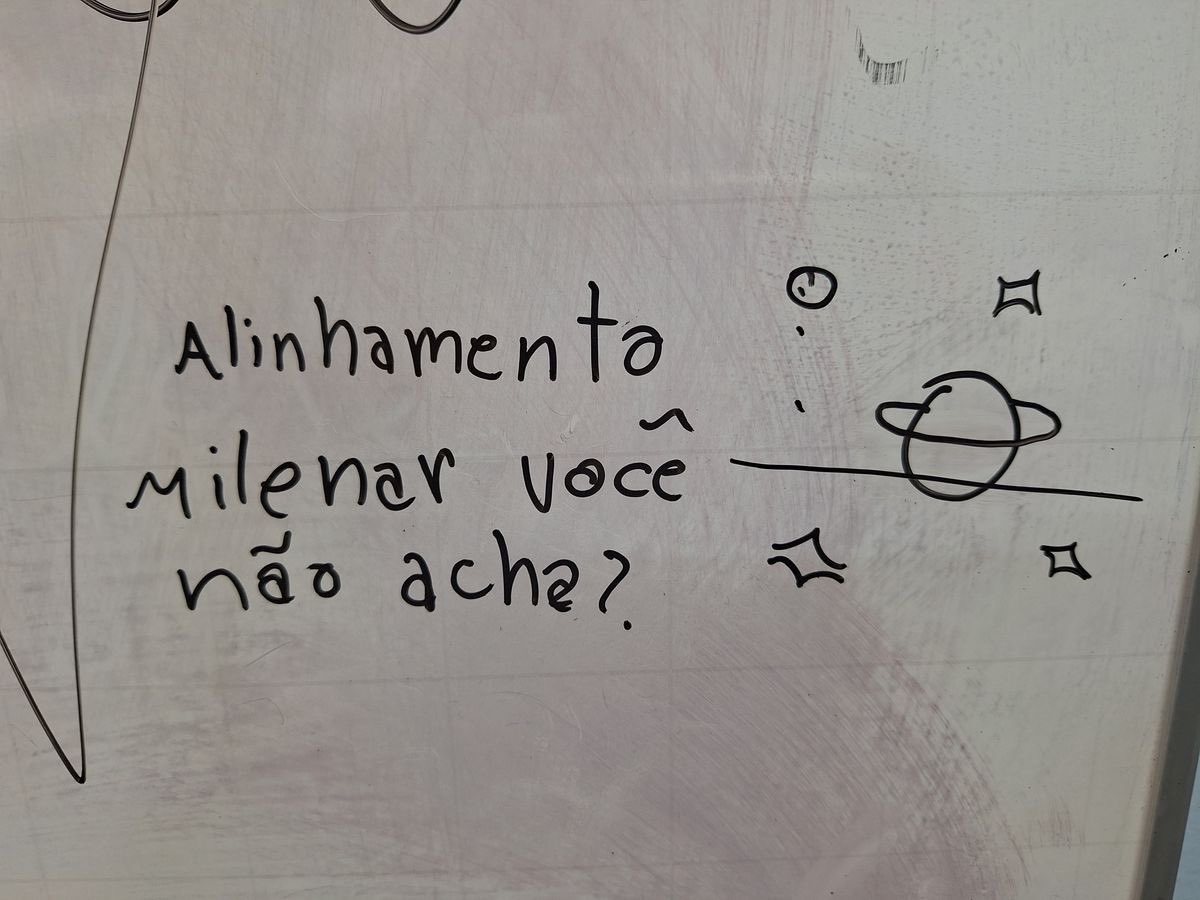 Alinhamento
Milenar você
não acha?